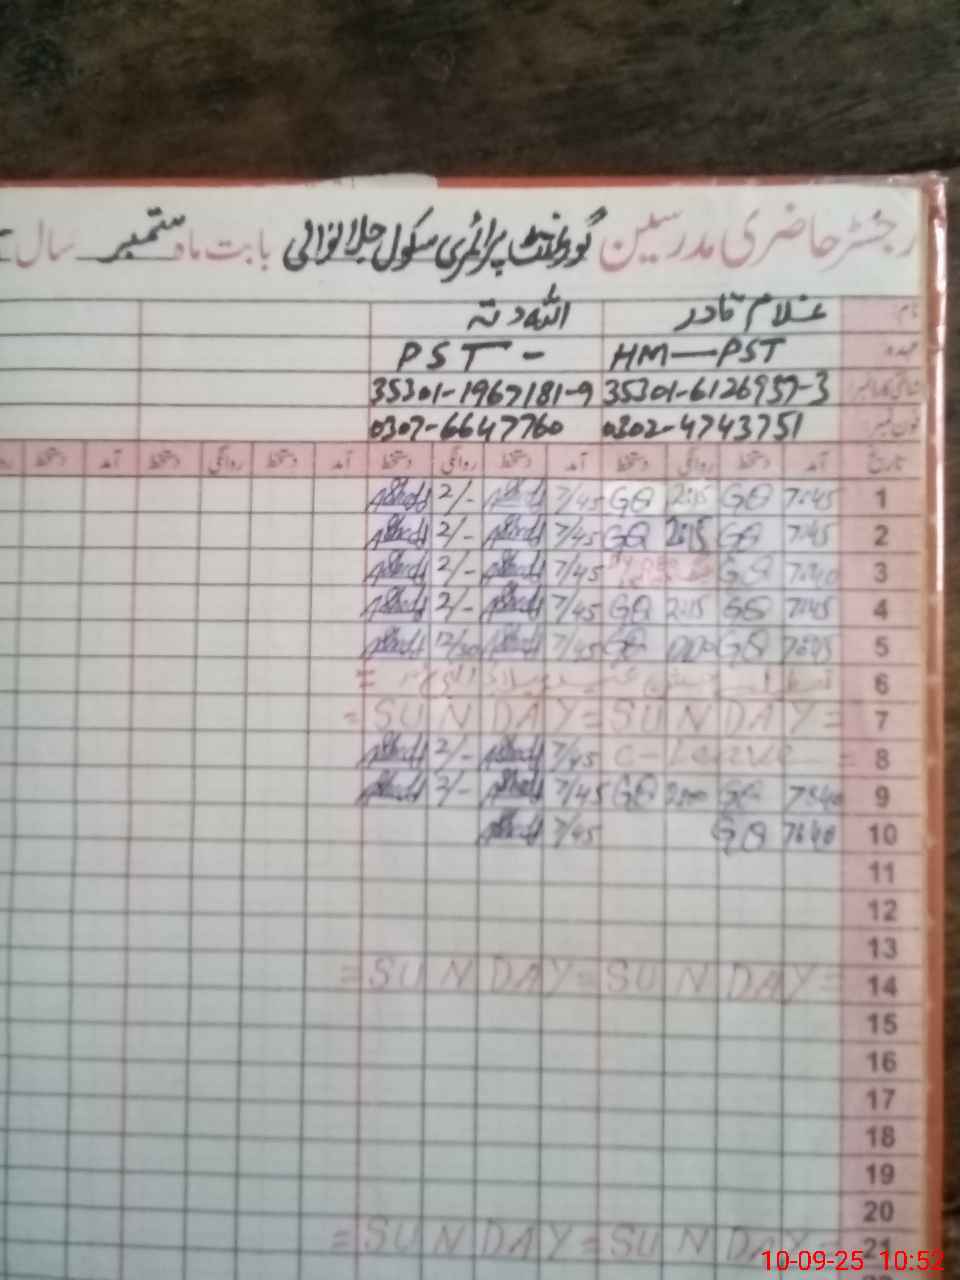 رجسٹر حاضری مدرسین گورنمنٹ پرائمری سکول جلالوالی بابت ماہ ستمبر سال
نام غلام قادر اللہ دتہ
عہدہ HM—PST PST -
شناختی کارڈ نمبر 35301-6126957-3 35301-1967181-9
فون نمبر 0302-4743751 0307-6647760
تاریخ آمد دستخط روانگی دستخط آمد دستخط روانگی دستخط آمد دستخط روانگی دستخط آمد دستخط
1 7:45 GQ 2:15 GQ 7/45 2/-
2 7:45 GQ 2:15 GQ 7/45 2/-
3 7:40 GQ 7/45 2/-
4 7:45 GQ 2:15 GQ 7/45 2/-
5 7:45 GQ GQ 7/45 12/30
6
7 = SUNDAY = SUNDAY =
8 C-Leave 7/45 2/-
9 7:40 GQ 2:00 GQ 7/45 2/-
10 7:40 GQ 7/45
11
12
13
14 = SUNDAY = SUNDAY =
15
16
17
18
19
20
21 = SUNDAY = SUNDAY =
10-09-25 10:52